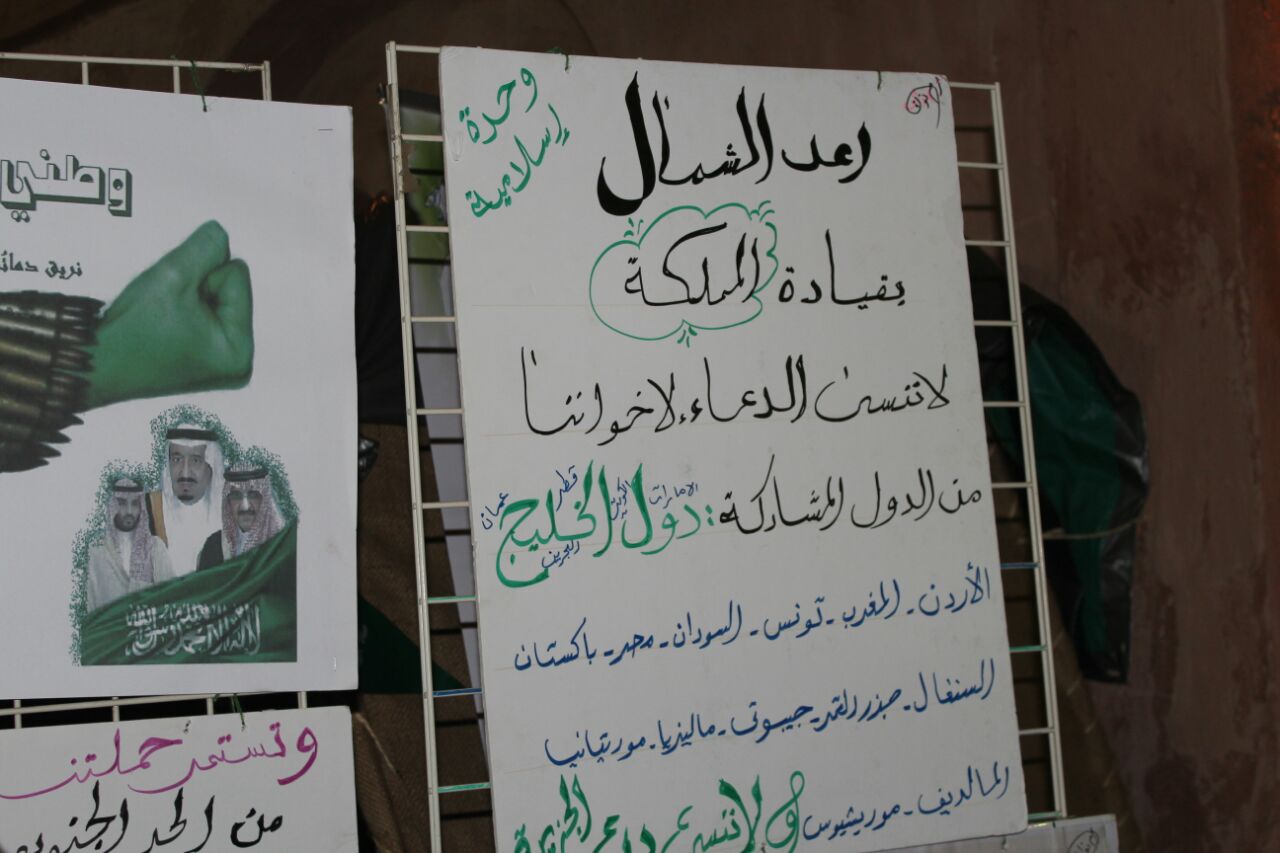 وحدة
إسلامية
رعد الشمال
بقيادة المملكة
لا تنسى الدعاء لاخواننا
من الدول المشاركة: دول الخليج
الامارات
الكويت
قطر
البحرين
عمان
الأردن - المغرب - تونس - السودان - مصر - باكستان
السنغال - جزر القمر - جيبوتي - ماليزيا - موريتانيا
المالديف - موريشيوس
ولا تنسى درع الجزيرة
وطني
نريق دمائ
لا إله إلا الله محمد رسول الله
وتستمر حملتن
من الحد الجنوب